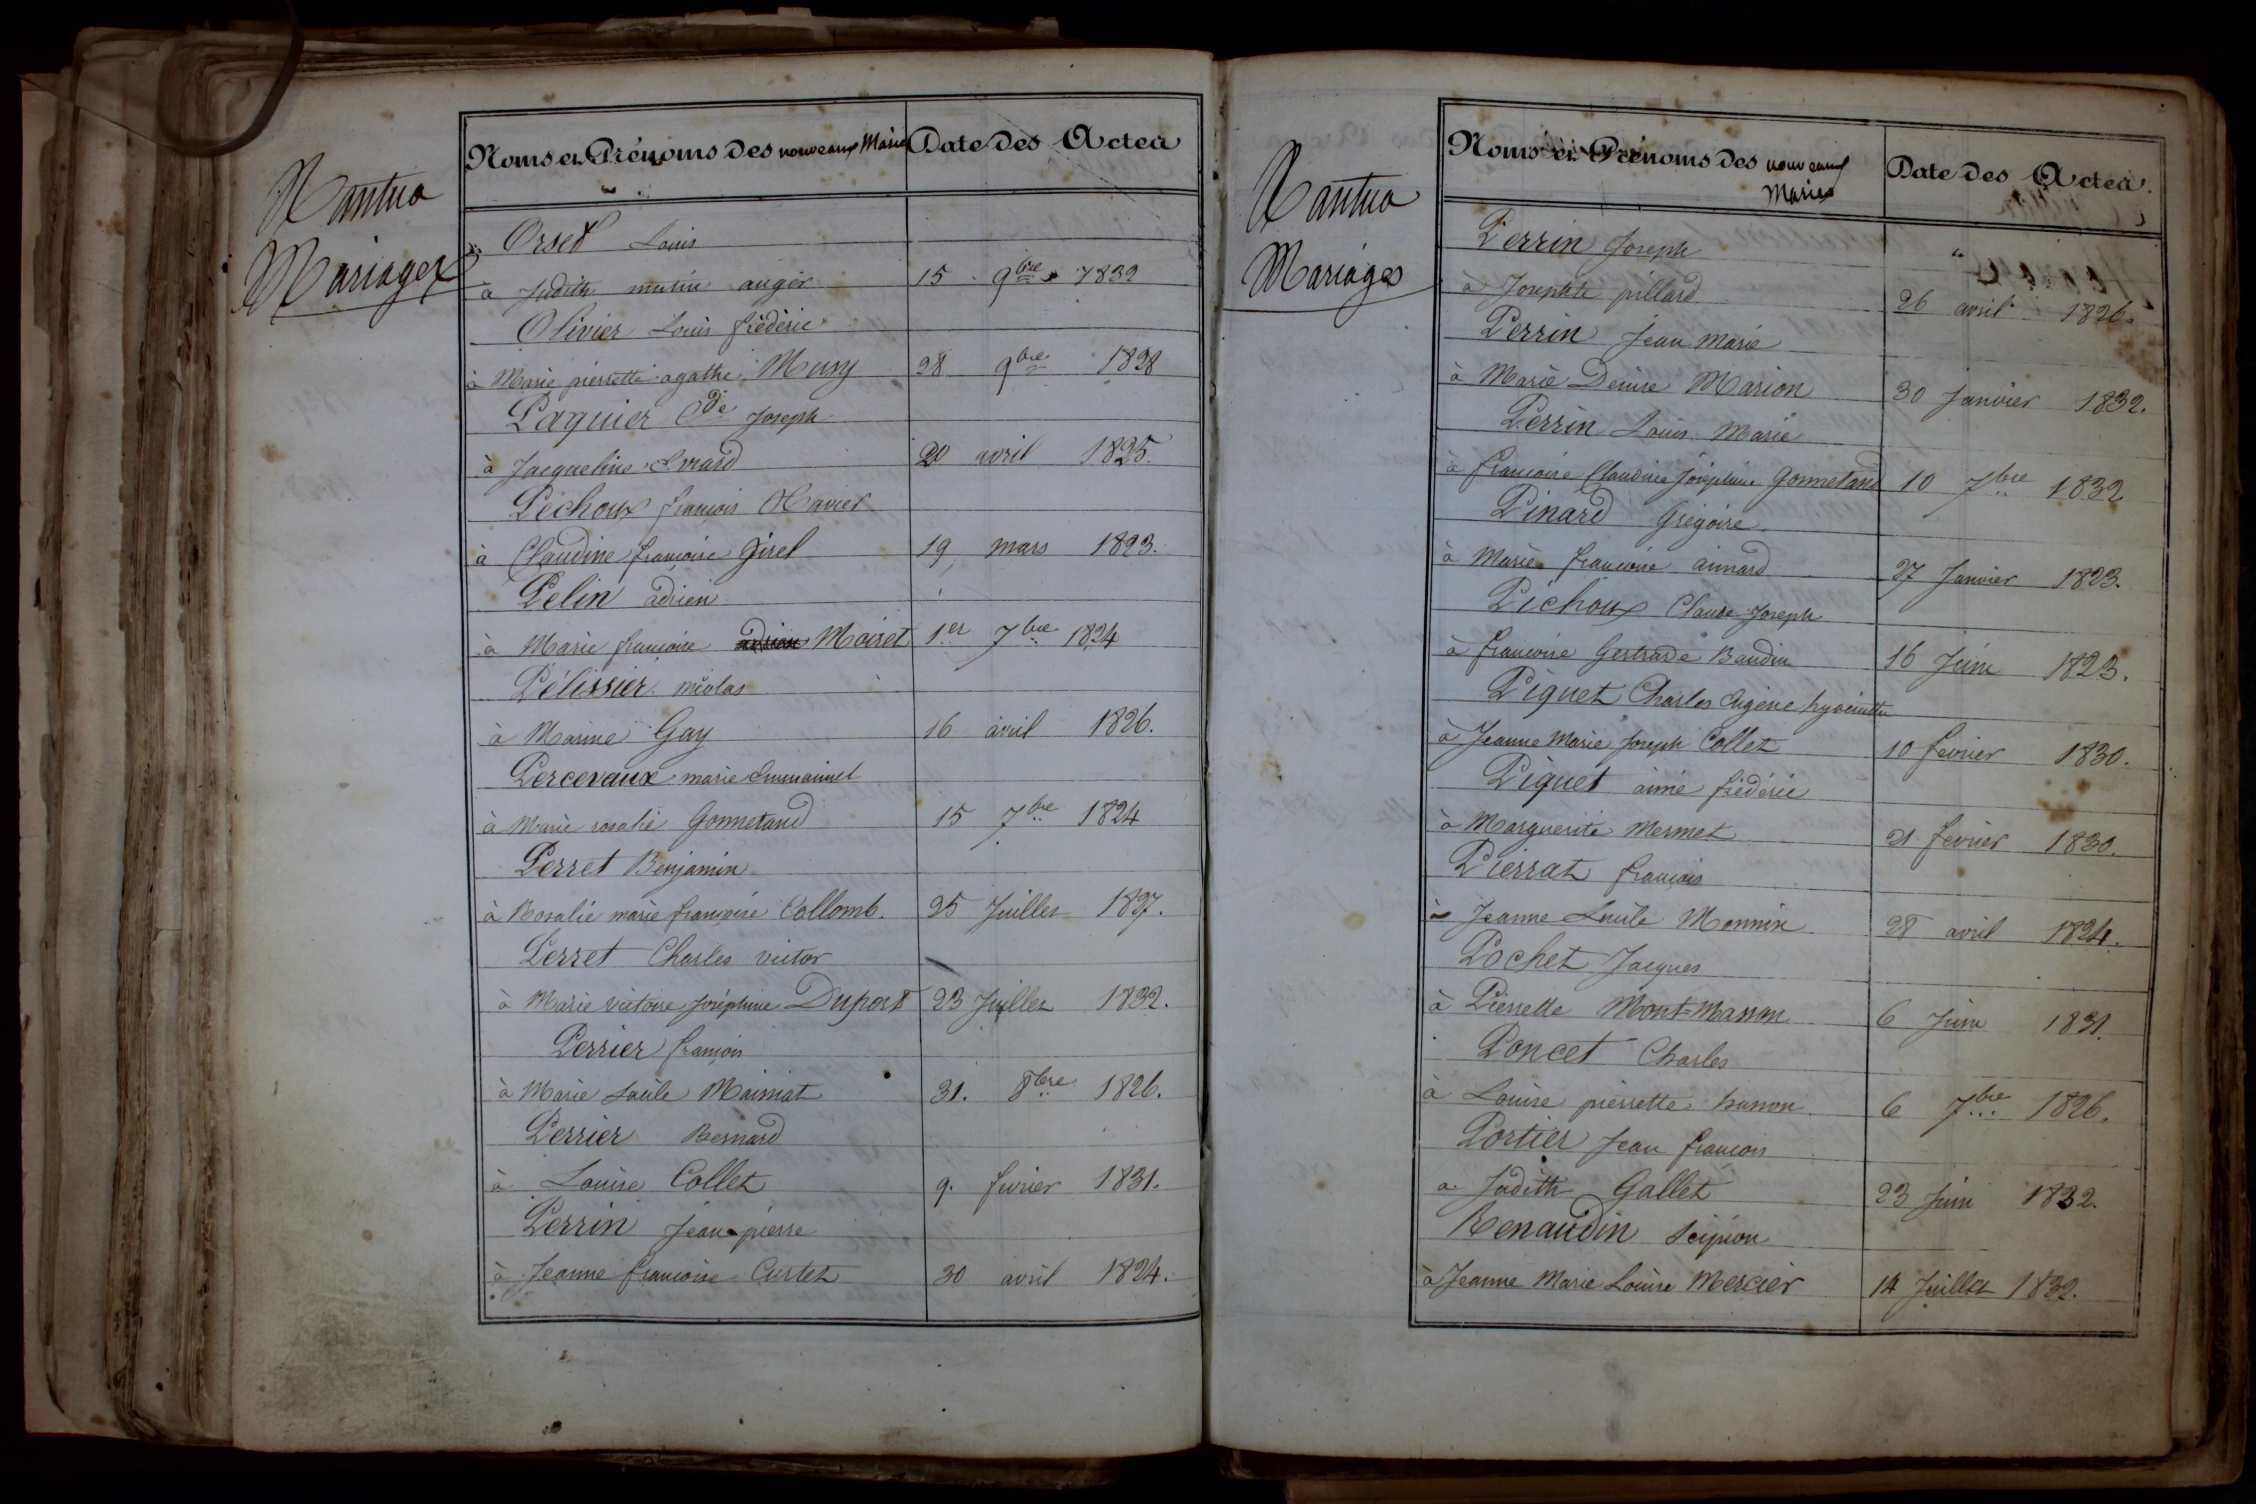 Nantua
Mariages
Noms et Prénoms des nouveaux Marié Date des Actes
Orset Louis
à Judith auger 15 9bre 1832
Olivier Louis frédéric
à Marie pierrette agathe Musy 28 9bre 1828
Paquier Cde Joseph
à Jacqueline Evrard 20 avril 1825.
Péchoux françois Xavier
à Claudine françoise Girel 19 mars 1823.
Pelin adrien
à Marie françoise Moiret 1er 7bre 1824
Pélissier nicolas
à Marine Gay 16 avril 1826.
Percevaux marie Emmanuel
à Marie rosalie Gonnetand 15 7bre 1824
Perret Benjamin
à Rosalie marie françoise Collomb. 25 Juillet 1827.
Perret Charles victor
à Marie victoire Joséphine Duport 23 Juillet 1832.
Perrier françois
à Marie Lucile Moiniat 31. 8bre 1826.
Perrier Bernard
à Louise Collet 9. fevrier 1831.
Perrin Jean pierre
à Jeanne françoise Curtet 30 avril 1824.
Nantua
Mariages
Noms et Prénoms des nouveaux Mariés Date des Actes.
Perrin Joseph "
à Josephte pillard 26 avril 1826.
Perrin Jean Marie
à Marie Denise Marion 30 Janvier 1832.
Perrin Louis Marie
à françoise Claudine Joséphine Gonnetand 10 7bre 1832
Pinard Grégoire
à Marie françoise aimard 27 Janvier 1823.
Péchoux Claude Joseph
à françoise Gertrude Baudin 16 Juin 1823.
Piquet Charles Eugène hyacinthe
à Jeanne Marie Joseph Collet 10 fevrier 1830.
Piquet aimé frédéric
à Marguerite Mermet 21 fevrier 1830.
Pierrat françois
à Jeanne Lucile Monnin 28 avril 1824.
Pochet Jacques
à Pierrette Mont=Masson 6 Juin 1831.
Poncet Charles
à Louise pierrette husson 6 7bre 1826.
Portier Jean françois
a Judith Gallet 23 Juin 1832.
Renaudin Scipion
à Jeanne Marie Louise Mercier 14 Juillet 1832.